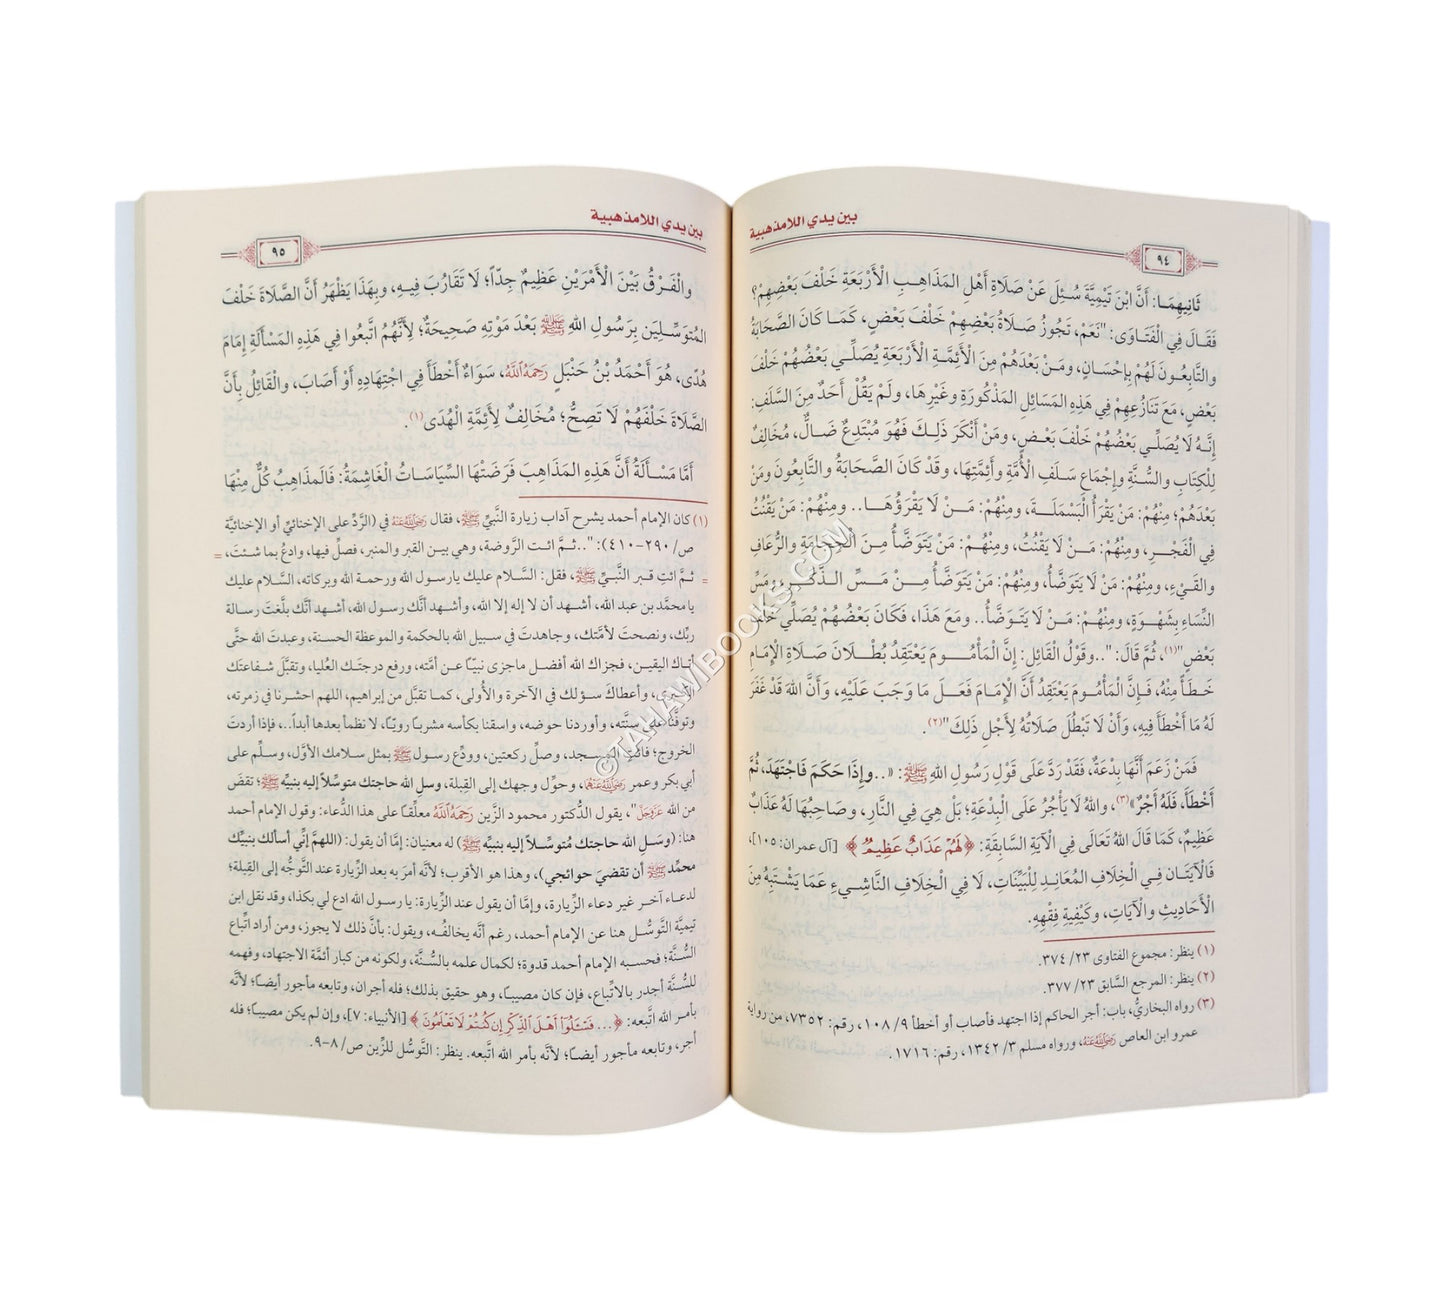 بين يدي اللامذهبية
٩٤
ثَانِيهِمَا: أَنَّ ابْنَ تَيْمِيَّةَ سُئِلَ عَنْ صَلَاةِ أَهْلِ المَذَاهِبِ الْأَرْبَعَةِ خَلْفَ بَعْضِهِمْ؟
فَقَالَ فِي الْفَتَاوَى: "نَعَمْ، تَجُوزُ صَلَاةُ بَعْضِهِمْ خَلْفَ بَعْضٍ، كَمَا كَانَ الصَّحَابَةُ
والتَّابِعُونَ لَهُمْ بِإِحْسَانٍ، ومَنْ بَعْدَهُمْ مِنَ الْأَئِمَّةِ الْأَرْبَعَةِ يُصَلِّي بَعْضُهُمْ خَلْفَ
بَعْضٍ، مَعَ تَنَازُعِهِمْ فِي هَذِهِ المَسَائِلِ المَذْكُورَةِ وغَيْرِهَا، ولَمْ يَقُلْ أَحَدٌ مِنَ السَّلَفِ:
إِنَّهُ لَا يُصَلِّي بَعْضُهُمْ خَلْفَ بَعْضٍ، ومَنْ أَنْكَرَ ذَلِكَ فَهُوَ مُبْتَدِعٌ ضَالٌّ، مُخَالِفٌ
لِلْكِتَابِ والسُّنَّةِ وإِجْمَاعِ سَلَفِ الْأُمَّةِ وأَئِمَّتِهَا، وقَدْ كَانَ الصَّحَابَةُ والتَّابِعُونَ ومَنْ
بَعْدَهُمْ؛ مِنْهُمْ: مَنْ يَقْرَأُ الْبَسْمَلَةَ، ومِنْهُمْ: مَنْ لَا يَقْرَؤُهَا.. ومِنْهُمْ: مَنْ يَقْنُتُ
فِي الْفَجْرِ، ومِنْهُمْ: مَنْ لَا يَقْنُتُ، ومِنْهُمْ: مَنْ يَتَوَضَّأُ مِنَ الْحِجَامَةِ والرُّعَافِ
والقَيْءِ، ومِنْهُمْ: مَنْ لَا يَتَوَضَّأُ، ومِنْهُمْ: مَنْ يَتَوَضَّأُ مِنْ مَسِّ الذَّكَرِ، ومَسِّ
النِّسَاءِ بِشَهْوَةٍ، ومِنْهُمْ: مَنْ لَا يَتَوَضَّأُ.. ومَعَ هَذَا، فَكَانَ بَعْضُهُمْ يُصَلِّي خَلْفَ
بَعْضٍ"(١)، ثُمَّ قَالَ: "..وقَوْلُ القَائِلِ: إِنَّ الْمَأْمُومَ يَعْتَقِدُ بُطْلَانَ صَلَاةِ الْإِمَامِ
خَطَأٌ مِنْهُ، فَإِنَّ الْمَأْمُومَ يَعْتَقِدُ أَنَّ الْإِمَامَ فَعَلَ مَا وَجَبَ عَلَيْهِ، وَأَنَّ اللهَ قَدْ غَفَرَ
لَهُ مَا أَخْطَأَ فِيهِ، وَأَنْ لَا تَبْطُلَ صَلَاتُهُ لِأَجْلِ ذَلِكَ"(٢).
فَمَنْ زَعَمَ أَنَّهَا بِدْعَةٌ، فَقَدْ رَدَّ عَلَى قَوْلِ رَسُولِ اللهِ ﷺ: «..وإِذَا حَكَمَ فَاجْتَهَدَ، ثُمَّ
أَخْطَأَ، فَلَهُ أَجْرٌ»(٣)، واللهُ لَا يَأْجُرُ عَلَى الْبِدْعَةِ؛ بَلْ هِيَ فِي النَّارِ، وصَاحِبُهَا لَهُ عَذَابٌ
عَظِيمٌ، كَمَا قَالَ اللهُ تَعَالَى فِي الْآيَةِ السَّابِقَةِ: ﴿لَهُمْ عَذَابٌ عَظِيمٌ﴾ [آل عمران: ١٠٥]،
فَالْآيَتَانِ فِي الْخِلَافِ المُعَانِدِ لِلْبَيِّنَاتِ، لَا فِي الْخِلَافِ النَّاشِيءِ عَمَا يَشْتَبِهُ مِنَ
الْأَحَادِيثِ والْآيَاتِ، وكَيْفِيَةِ فِقْهِهِ.
(١) ينظر: مجموع الفتاوى ٢٣/ ٣٧٤.
(٢) ينظر: المرجع السَّابق ٢٣/ ٣٧٧.
(٣) رواه البخاريُّ، باب: أجر الحاكم إذا اجتهد فأصاب أو أخطأ ٩/ ١٠٨، رقم: ٧٣٥٢، من رواية
عمرو ابن العاص رَضِيَ اللَّهُ عَنْهُ، ورواه مسلم ٣/ ١٣٤٢، رقم: ١٧١٦.
بين يدي اللامذهبية
٩٥
والْفَرْقُ بَيْنَ الْأَمْرَيْنِ عَظِيمٌ جِدّاً؛ لَا تَقَارُبَ فِيهِ، وبِهَذَا يَظْهَرُ أَنَّ الصَّلَاةَ خَلْفَ
المُتَوَسِّلِينَ بِرَسُولِ اللهِ ﷺ بَعْدَ مَوْتِهِ صَحِيحَةٌ؛ لِأَنَّهُمُ اتَّبَعُوا فِي هَذِهِ المَسْأَلَةِ إِمَامَ
هُدًى، هُوَ أَحْمَدُ بْنُ حَنْبَلٍ رَحِمَهُ اللَّهُ، سَوَاءٌ أَخْطَأَ فِي اجْتِهَادِهِ أَوْ أَصَابَ، والْقَائِلُ بِأَنَّ
الصَّلَاةَ خَلْفَهُمْ لَا تَصِحُّ؛ مُخَالِفٌ لِأَئِمَّةِ الْهُدَى(١).
أَمَّا مَسْأَلَةُ أَنَّ هَذِهِ المَذَاهِبَ فَرَضَتْهَا السِّيَاسَاتُ الْغَاشِمَةُ: فَالمَذَاهِبُ كُلٌّ مِنْهَا
(١) كان الإمام أحمد يشرح آداب زيارة النَّبيِّ ﷺ، فقال رَضِيَ اللَّهُ عَنْهُ في (الرَّدِّ على الإخنائيِّ أو الإخنائيَّة
ص/ ٢٩٠-٤١٠): "..ثمَّ ائت الرَّوضة، وهي بين القبر والمنبر، فصلِّ فيها، وادعُ بما شئتَ،
ثمَّ ائتِ قبر النَّبيِّ ﷺ، فقل: السَّلام عليك يارسول الله ورحمة الله وبركاته، السَّلام عليك
يا محمَّد بن عبد الله، أشهد أن لا إله إلا الله، وأشهد أنَّك رسول الله، أشهد أنَّك بلَّغتَ رسالة
ربِّك، ونصحتَ لأمَّتك، وجاهدتَ في سبيل الله بالحكمة والموعظة الحسنة، وعبدتَ الله حتَّى
أتاك اليقين، فجزاك الله أفضل ماجزى نبيّاً عن أمَّته، ورفع درجتك العُليا، وتقبَّل شفاعتك
وأعطاكَ سؤلك في الآخرة والأُولى، كما تقبَّل من إبراهيم، اللهم احشرنا في زمرته،
وتوفَّنا على سنَّته، وأوردنا حوضه، واسقنا بكأسه مشربًا رويًا، لا نظمأ بعدها أبداً..، فإذا أردتَ
الخروج؛ فائت المسجد، وصلِّ ركعتين، وودِّع رسول ﷺ بمثل سلامك الأوَّل، وسلِّم على
أبي بكر وعمر رَضِيَ اللَّهُ عَنْهُمَا، وحوِّل وجهك إلى القِبلة، وسلِ الله حاجتك متوسِّلاً إليه بنبيِّه ﷺ؛ تقضَ
من الله عَزَّوَجَلَّ"، يقول الدُّكتور محمود الزَّين رَحِمَهُ اللَّهُ معلِّقا على هذا الدُّعاء: وقول الإمام أحمد
هنا: (وسَلِ الله حاجتك مُتوسِّلاً إليه بنبيِّه ﷺ) له معنيان: إمَّا أن يقول: (اللهمَّ إنِّي أسألك بنبيِّك
محمَّدٍ ﷺ أن تقضيَ حوائجي)، وهذا هو الأقرب؛ لأنَّه أمرَ به بعد الزِّيارة عند التَّوجُّه إلى القِبلة؛
لدعاء آخر غير دعاء الزِّيارة، وإمَّا أن يقول عند الزِّيارة: يا رسول الله ادع لي بكذا، وقد نقل ابن
تيميَّة التَّوسُّل هنا عن الإمام أحمد، رغم أنَّه يخالفُه، ويقول: بأنَّ ذلك لا يجوز، ومن أراد اتِّباع
السُّنَّة؛ فحسبه الإمام أحمد قدوة؛ لكمال علمه بالسُّنَّة، ولكونه من كبار أئمَّة الاجتهاد، وفهمه
للسُّنَّة أجدر بالاتِّباع، فإن كان مصيبًا، وهو حقيق بذلك؛ فله أجران، وتابعه مأجور أيضًا؛ لأنَّه
بأمر الله اتَّبعه: ﴿... فَسْـَٔلُوٓا۟ أَهْلَ ٱلذِّكْرِ إِن كُنتُمْ لَا تَعْلَمُونَ﴾ [الأنبياء: ٧]، وإن لم يكن مصيبًا؛ فله
أجر، وتابعه مأجور أيضًا؛ لأنَّه بأمر الله اتَّبعه. ينظر: التَّوسُّل للزِّين ص/ ٨-٩.
©TAHAMIBOOKS.COM